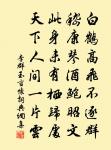 白鶴高飛不逐群
嵇康琴酒鮑昭文
此身未有棲歸處
天下人間一片雲
李群玉言懷詞典網